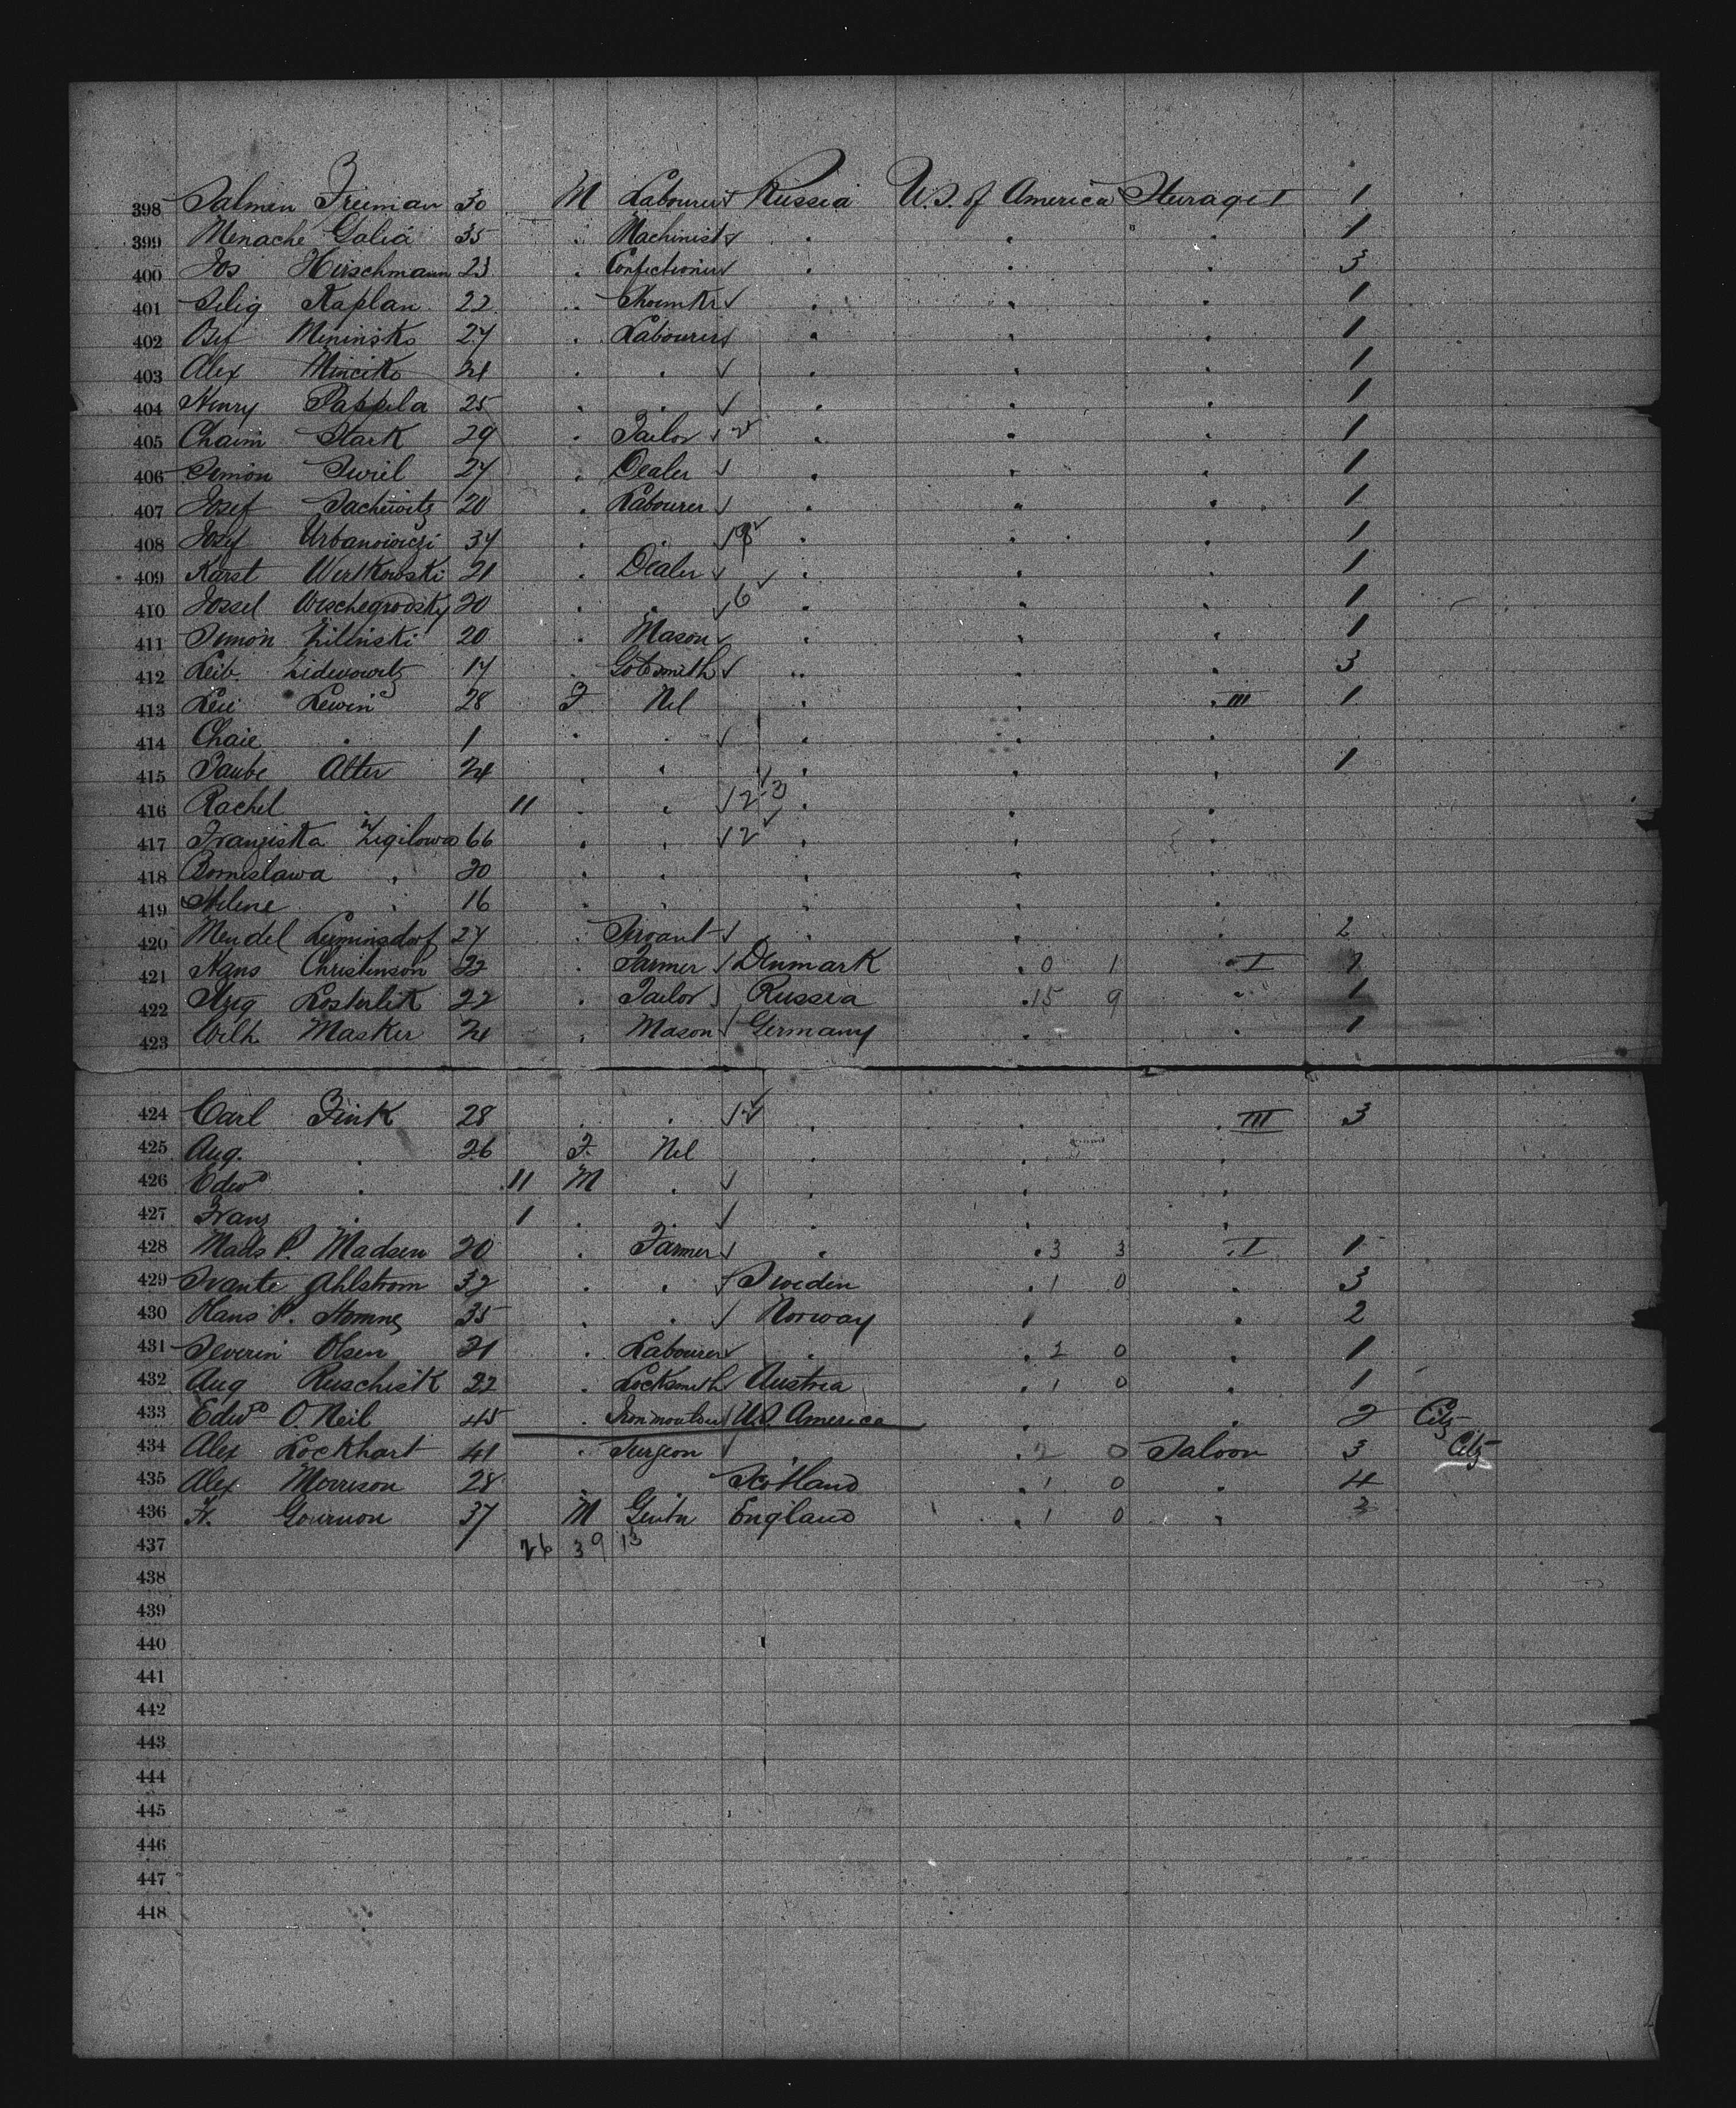 398 Salmen Freeman 30 M Labourer Russia U.S. of America Steerage I 1
399 Menache Galia 35 . Machinist . . . 1
400 Jos Hirschmann 23 . Confectioner . . . 3
401 Selig Kaplan 22 . Shoemkr . . . 1
402 Meninsko 27 . Labourer . . . 1
403 Alex 21 . . . . . 1
404 Henry Pappela 25 . . . . . 1
405 Chaim Stark 29 . Tailor 2 . . . 1
406 Simon 27 . Dealer . . . 1
407 Josef Sachewitz 20 . Labourer . . . 1
408 Josef Urbanowiczi 34 . . . . . 1
409 Karst Wertkowski 21 . Dealer . . . 1
410 Jossel Wischegrodsky 20 . . 6 . . . 1
411 Simon Zilinski 20 . Mason . . . 1
412 Leib 17 . Goldsmith . . . 3
413 Lewin 28 F Nil . . . III 1
414 Chaie . 1 . . . . .
415 Taube Alter 24 . . . . . 1
416 Rachel 11 . . 2 . . .
417 Franziska 66 . . 2 . . .
418 . 20 . . . . .
419 Helene . 16 . . . . .
420 Mendel 27 . Servant . . . 2
421 Hans Christenson 22 . Farmer Denmark . 0 1 . I 1
422 22 . Tailor Russia . 15 9 . 1
423 Wilh Masker 24 . Mason Germany . . 1
424 Carl Fink 28 . . . . . III 3
425 Aug. . 26 F. Nil . . .
426 Edwd . 11 M . . . .
427 Franz . 1 . . . . .
428 Mads P. Madsen 20 . Farmer . . 3 3 . I 1
429 Svante Ahlstrom 32 . . Sweden . 1 0 . 3
430 Hans P. 35 . . Norway . 2
431 Severin Olsen 21 . Labourer . . 1 0 . 1
432 Aug Ruschisk 22 . Locksmith Austria . 1 0 . 1
433 Edwd O.Neil 45 . U.S. America . . 2 Citz
434 Alex Lockhart 41 . Surgeon . 2 0 Saloon 3 Citz
435 Alex Morrison 28 . Scotland . 1 0 . 4
436 H. 37 M Gentn England . 1 0 . 3
437 26 39 13
438
439
440
441
442
443
444
445
446
447
448